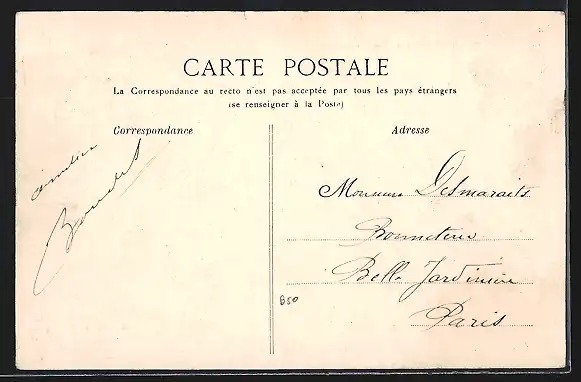 CARTE POSTALE
La Correspondance au recto n'est pas acceptée par tous les pays étrangers
(se renseigner à la Poste)
Correspondance
Adresse
Monsieur Desmaraits
Bonneterie
Belle Jardinière
Paris
B50